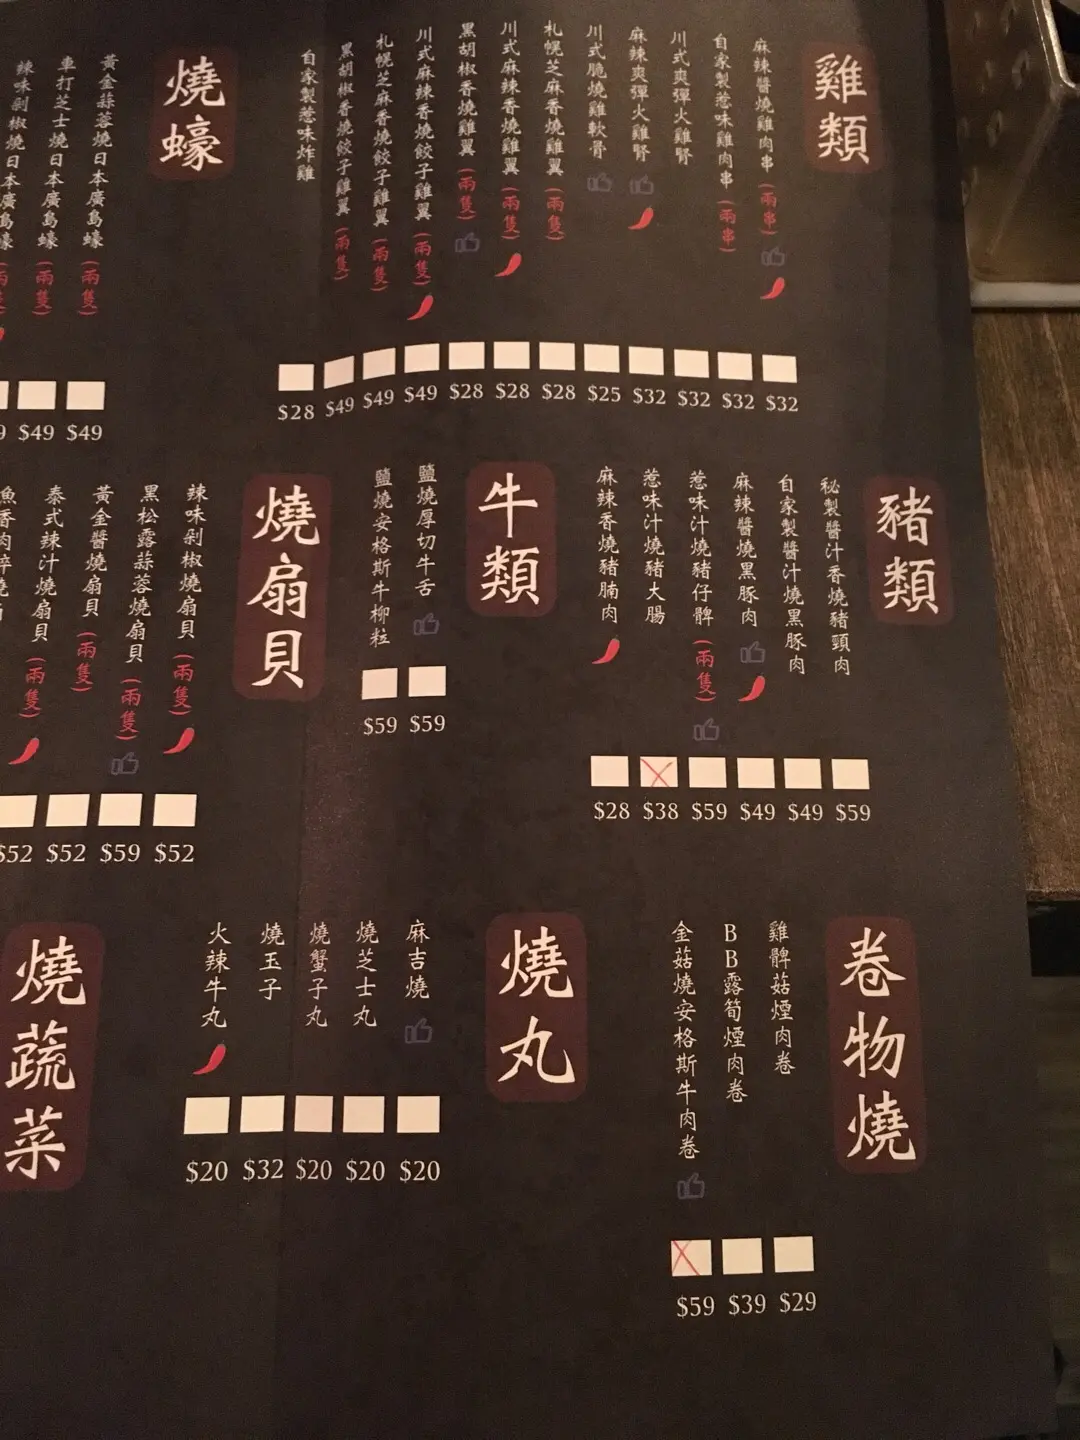 雞類
麻辣醬燒雞肉串(兩串)
$32
自家製惹味雞肉串(兩串)
$32
川式爽彈火雞腎
$32
麻辣爽彈火雞腎
$32
川式脆燒雞軟骨
$25
札幌芝麻香燒雞翼(兩隻)
$28
川式麻辣香燒雞翼(兩隻)
$28
黑胡椒香燒雞翼(兩隻)
$28
川式麻辣香燒餃子雞翼(兩隻)
$49
札幌芝麻香燒餃子雞翼(兩隻)
$49
黑胡椒香燒餃子雞翼(兩隻)
$49
自家製惹味炸雞
$28
燒蠔
黃金蒜蓉燒日本廣島蠔(兩隻)
$49
車打芝士燒日本廣島蠔(兩隻)
$49
辣味剁椒燒日本廣島蠔
豬類
秘製醬汁香燒豬頸肉
$59
自家製醬汁燒黑豚肉
$49
麻辣醬燒黑豚肉
$49
惹味汁燒豬仔髀(兩隻)
$59
惹味汁燒豬大腸
$38
麻辣香燒豬腩肉
$28
牛類
鹽燒厚切牛舌
$59
鹽燒安格斯牛柳粒
$59
燒扇貝
辣味剁椒燒扇貝(兩隻)
$52
黑松露蒜蓉燒扇貝(兩隻)
$59
黃金醬燒扇貝(兩隻)
$52
泰式辣汁燒扇貝(兩隻)
$52
卷物燒
雞髀菇煙肉卷
$29
BB露筍煙肉卷
$39
金菇燒安格斯牛肉卷
$59
燒丸
麻吉燒
$20
燒芝士丸
$20
燒蟹子丸
$20
燒玉子
$32
火辣牛丸
$20
燒蔬菜